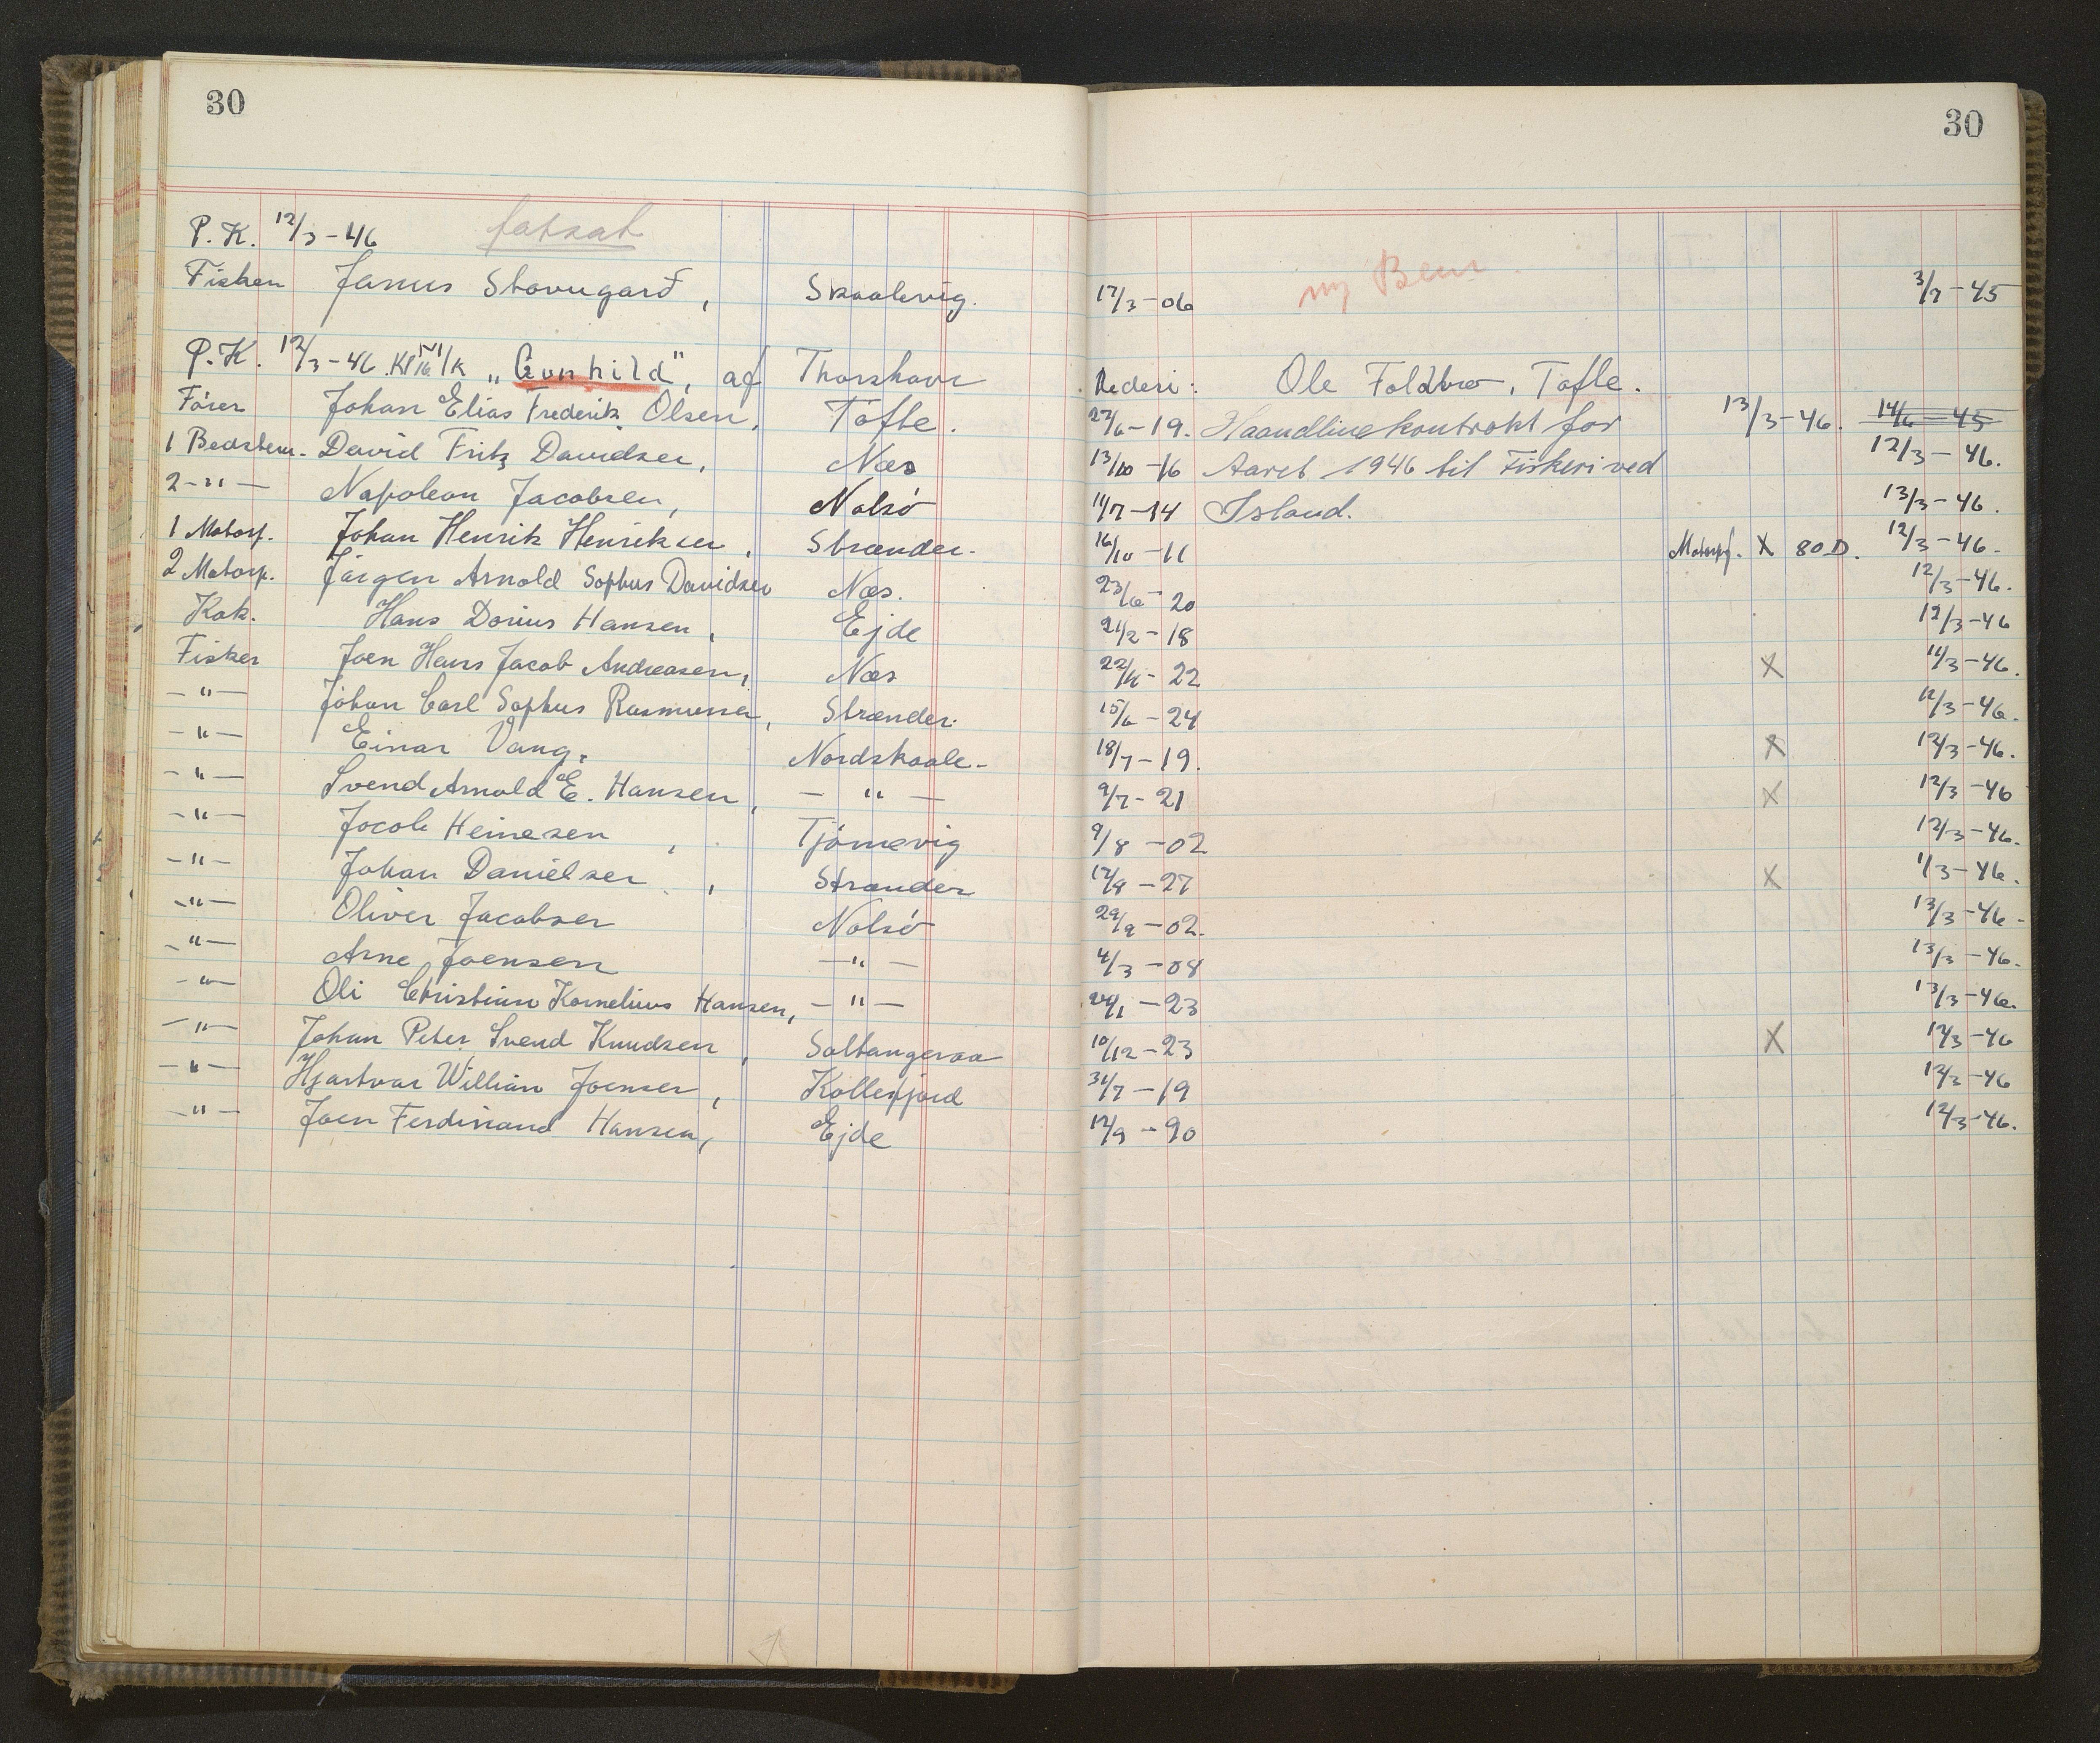 30
30
P. K. 12/3-46
Fisker Janus Stovugard, Skaalevig. 12/3-06 ny 3/7-45
P. K. 12/3-46. Kl 16 "Gunhild", af Thorshavn Rederi: Ole Foldbro, Tofte.
Förer Johan Elias Frederik Olsen, Tofte. 27/6-19. Haandlinekontrakt for 13/3-46. 14/6-45
1 Bedstem. David Fritz Davidsen, Næs 13/10-16 Aaret 1946 til Fiskeri ved 12/3-46.
2-"- Napoleon Jacobsen, Nolsó 11/7-14 Island. 13/3-46.
1 Motorp. Johan Henrik Henriksen, Strænder. 16/10-11 Motorpf. X 80 D. 12/3-46.
2 Motorp. Jörgen Arnold Sophus Davidsen Næs. 23/6-20 12/3-46.
Kok. Hans Dorius Hansen, Ejde 21/2-18 12/3-46
Fisker Joen Hans Jacob Andreasen, Næs 22/11-22 X 11/3-46.
-"- Johan Carl Sophus Rasmussen, Strænder. 15/6-24 12/3-46.
-"- Einar Vang, Nordskaale- 18/7-19. X 12/3-46.
-"- Svend Arnold E. Hansen, -"- 9/7-21 X 12/3-46
-"- Jacob Heinesen, Tjörnevig 9/8-02 12/3-46.
-"- Johan Danielsen, Strænder 12/9-27 X 1/3-46.
-"- Oliver Jacobsen Nolsó 29/9-02. 13/3-46-
-"- Arne Joensen -"- 4/3-08 13/3-46.
-"- Oli Christian Kornelius Hansen, -"- 24/1-23 13/3-46.
-"- Johan Peter Svend Knudsen, Saltangeraa 10/12-23 X 12/3-46
-"- Hjartvar William Joensen, Kollefjord 31/7-19 12/3-46
-"- Joen Ferdinand Hansen, Ejde 12/9-90 12/3-46.